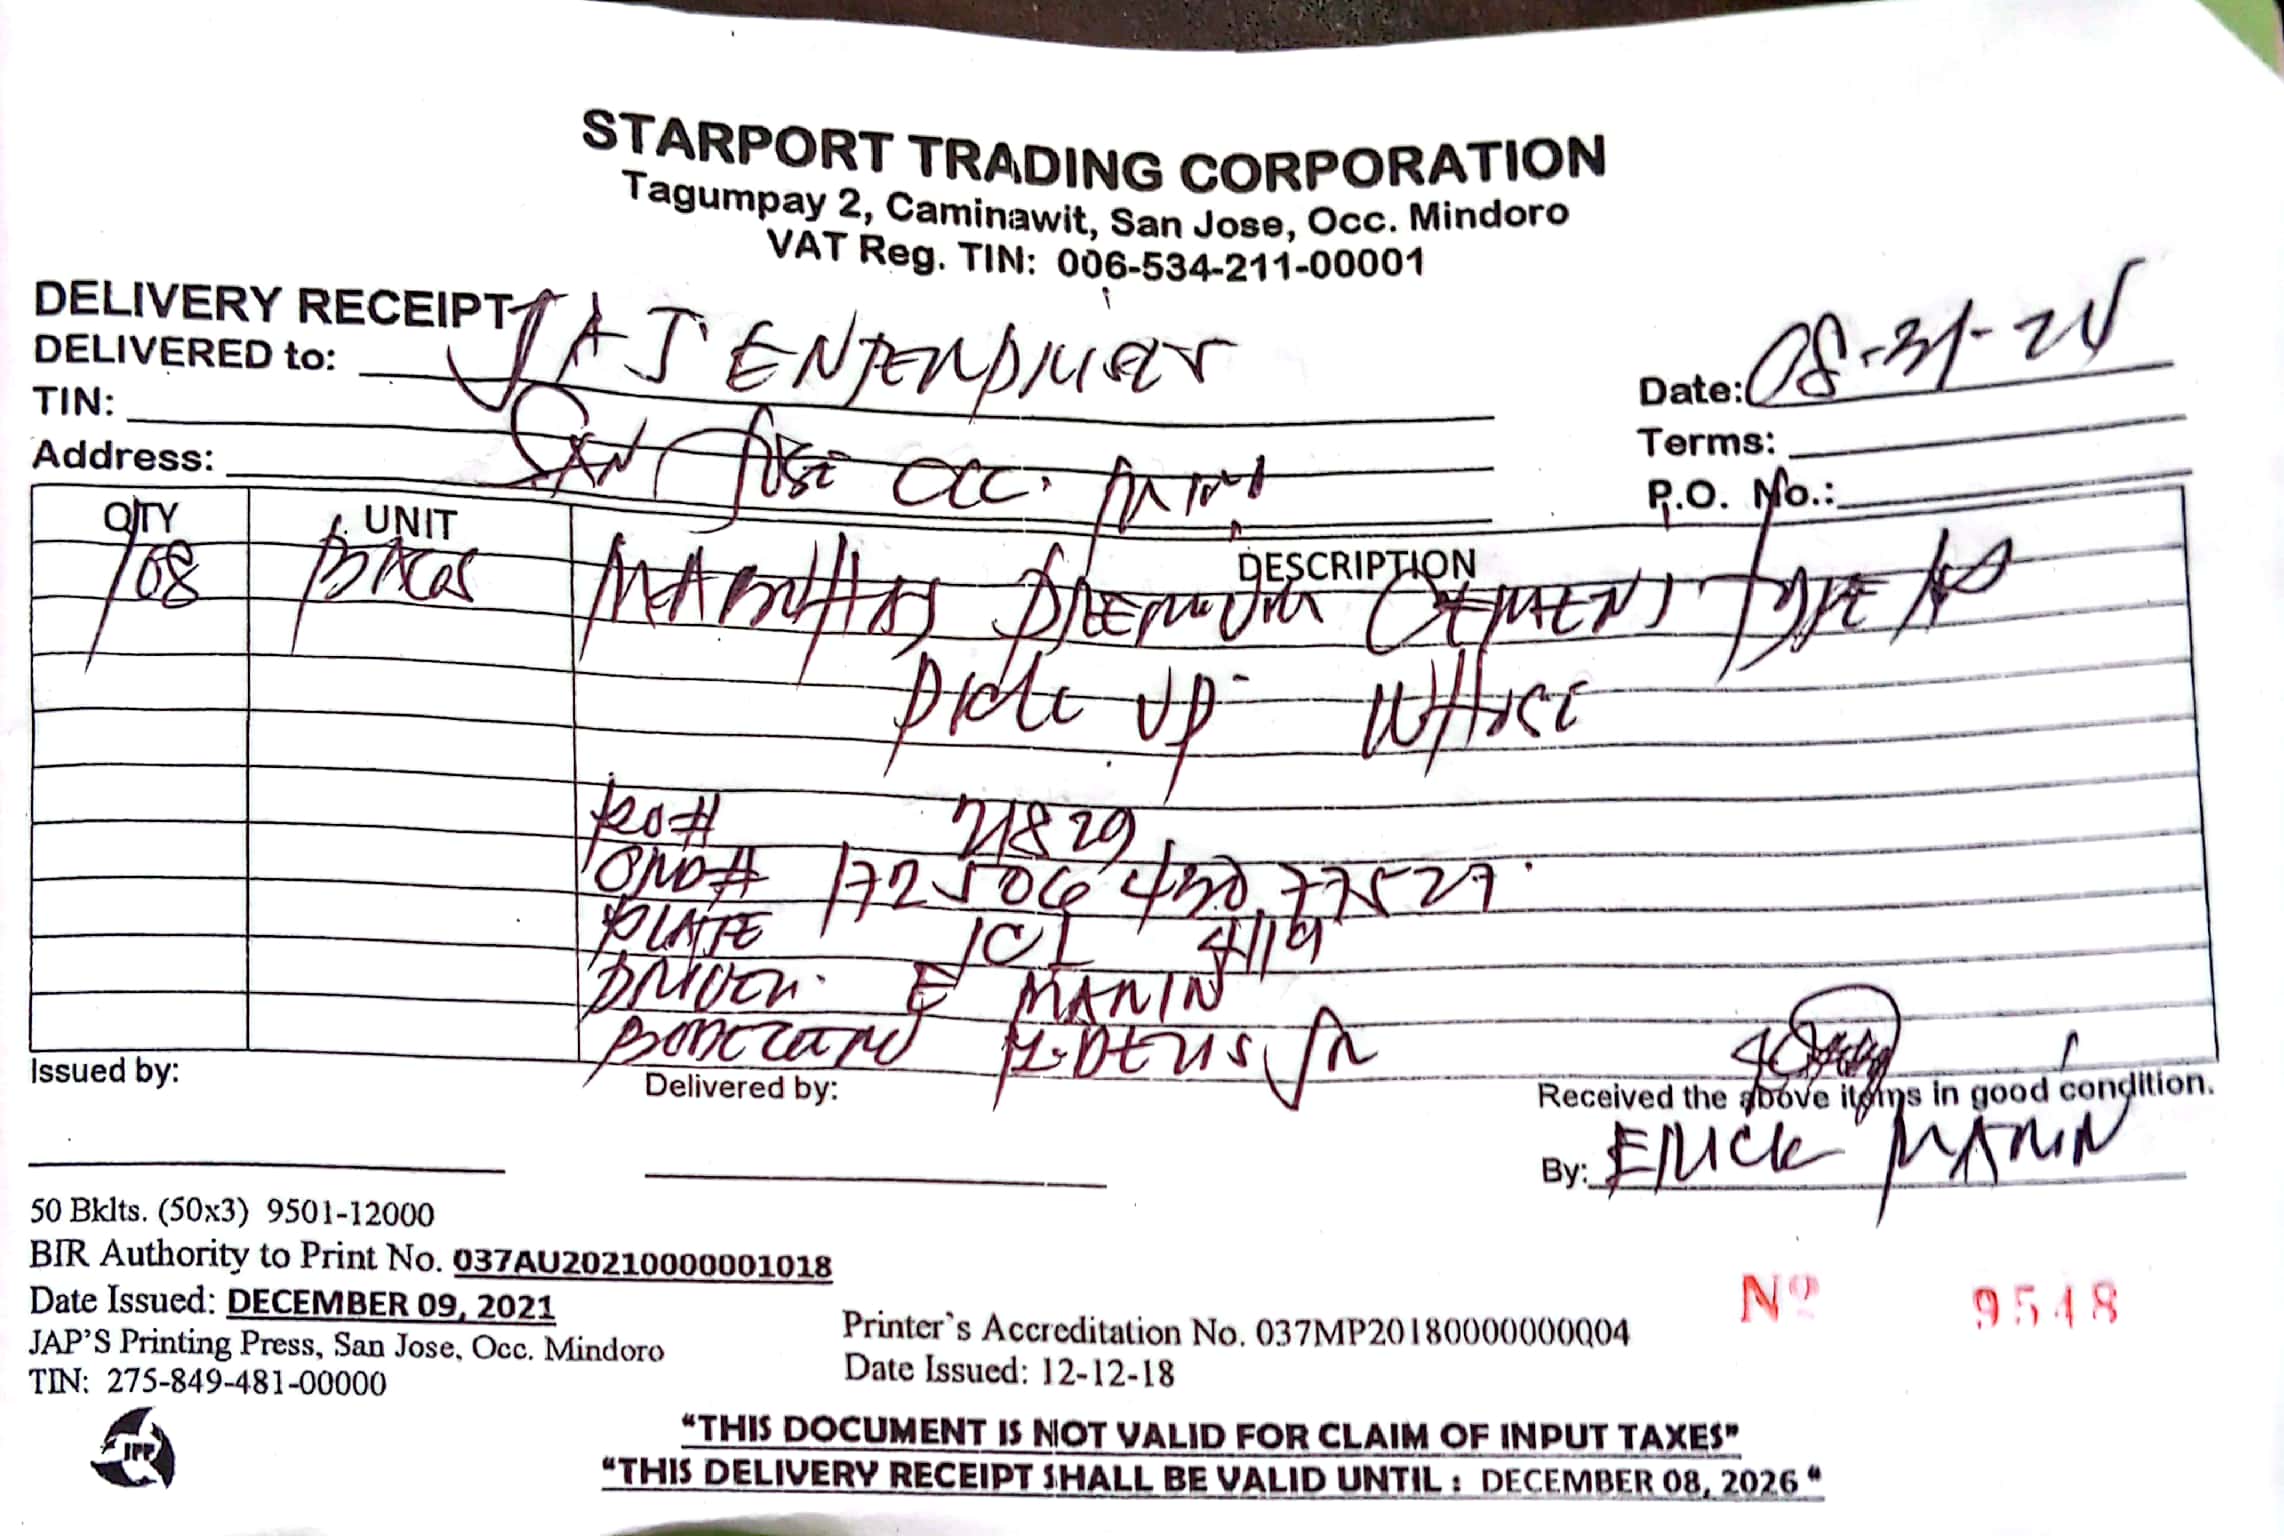 STARPORT TRADING CORPORATION
Tagumpay 2, Caminawit, San Jose, Occ. Mindoro
VAT Reg. TIN: 006-534-211-00001
DELIVERY RECEIPT
DELIVERED to: JAJ ENTERPRISES
Date: 08-31-24
TIN:
Terms:
Address: SAN JOSE OCC. MIN
P.O. No.:
QTY UNIT DESCRIPTION
108 BAGS MABUHAY PREMIUM CEMENT TYPE
PICK UP WHSE
RO# 21829
PLATE 4119
DRIVER E MARIN
Issued by:
Delivered by:
Received the above items in good condition.
By: ERICK MARIN
50 Bklts. (50x3) 9501-12000
BIR Authority to Print No. 037AU20210000001018
Date Issued: DECEMBER 09, 2021
JAP'S Printing Press, San Jose, Occ. Mindoro
TIN: 275-849-481-00000
Printer's Accreditation No. 037MP20180000000004
Date Issued: 12-12-18
Nº 9548
JPP
"THIS DOCUMENT IS NOT VALID FOR CLAIM OF INPUT TAXES"
"THIS DELIVERY RECEIPT SHALL BE VALID UNTIL : DECEMBER 08, 2026 "